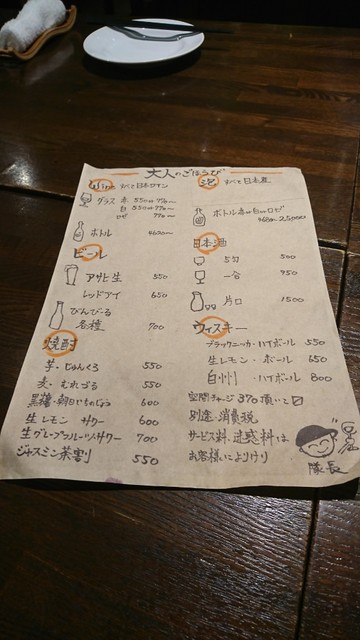 大人のごほうび
Wine すべて日本ワイン
グラス 赤 550or770〜
白 550or770〜
ロゼ 770〜
ボトル 4630〜
ビール
アサヒ生 550
レッドアイ 650
びんびーる
各種 700
焼酎
芋・じゅんくろ 550
麦・むれづる 550
黒糖・朝日 600
生レモン サワー 600
生グレープフルーツ・サワー 700
ジャスミン茶割 550
泡 すべて日本産
ボトル 赤or白orロゼ
日本酒
5勺 500
一合 950
片口 1500
ウィスキー
ブラックニッカ・ハイボール 550
生レモン・ボール 650
白州・ハイボール 800
空間チャージ 370頂いて
別途・消費税
サービス料・迷惑料は
お客様によりけり
隊長